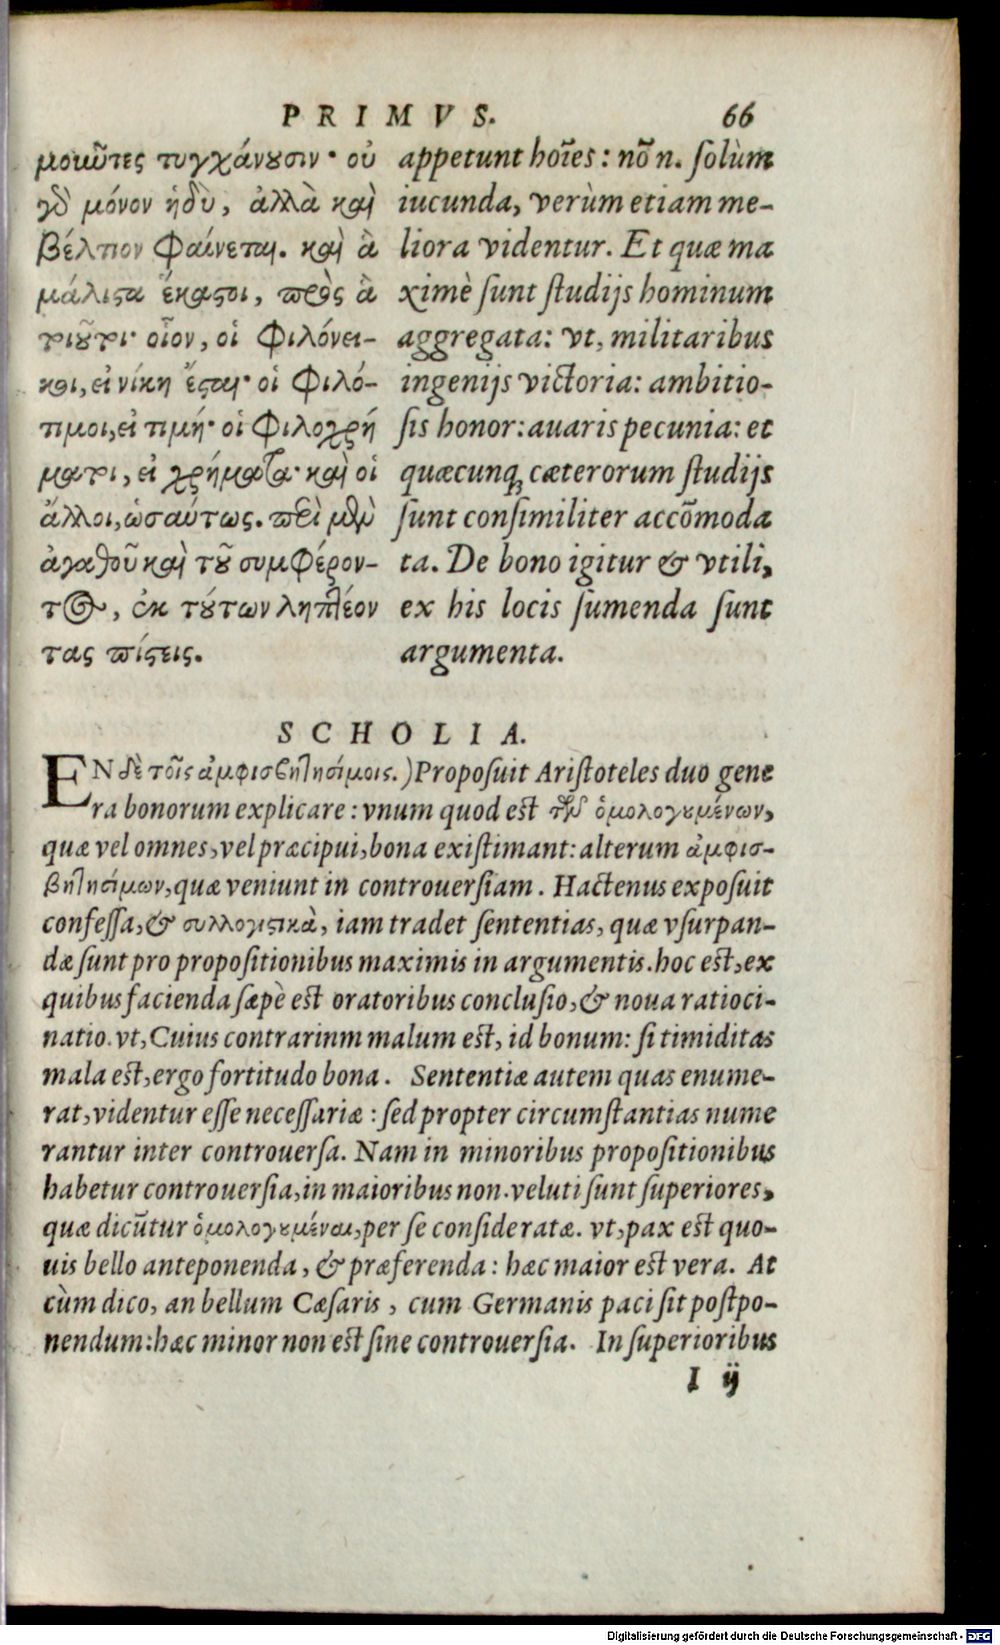 PRIMVS. 66
μοιῶντες τυγχάνουσιν· οὐ
γὰρ μόνον ἡδὺ, ἀλλὰ καὶ
βέλτιον φαίνεται. καὶ ἃ
μάλιστα ἕκαστοι, πρὸς ἃ
τοιοῦτοι· οἷον, οἱ φιλόνει-
κοι, εἰ νίκη ἔσται· οἱ φιλό-
τιμοι, εἰ τιμή· οἱ φιλοχρή
ματοι, εἰ χρήματα· καὶ οἱ
ἄλλοι, ὡσαύτως. περὶ μὲν
ἀγαθοῦ καὶ τοῦ συμφέρον-
τος, ἐκ τούτων ληπτέον
τας πίστεις.
appetunt hoīes: nõ n. ſolùm
iucunda, verùm etiam me-
liora videntur. Et quæ ma
ximè ſunt ſtudijs hominum
aggregata: vt, militaribus
ingenijs victoria: ambitio-
ſis honor: auaris pecunia: et
quæcunq; cæterorum ſtudijs
ſunt conſimiliter accõmoda
ta. De bono igitur & vtili,
ex his locis ſumenda ſunt
argumenta.
SCHOLIA.
EN δὲ τοῖς ἀμφισβητησίμοις.) Propoſuit Ariſtoteles duo gene
ra bonorum explicare: vnum quod eſt τῶν ὁμολογουμένων,
quæ vel omnes, vel præcipui, bona exiſtimant: alterum ἀμφισ-
βητησίμων, quæ veniunt in controuerſiam. Hactenus expoſuit
confeſſa, & συλλογιστικὰ, iam tradet ſententias, quæ vſurpan-
dæ ſunt pro propoſitionibus maximis in argumentis. hoc eſt, ex
quibus facienda ſæpè eſt oratoribus concluſio, & noua ratioci-
natio. vt, Cuius contrarinm malum eſt, id bonum: ſi timiditas
mala eſt, ergo fortitudo bona. Sententiæ autem quas enume-
rat, videntur eſſe neceſſariæ: ſed propter circumſtantias nume
rantur inter controuerſa. Nam in minoribus propoſitionibus
habetur controuerſia, in maioribus non. veluti ſunt ſuperiores,
quæ dicũtur ὁμολογουμέναι, per ſe conſideratæ. vt, pax eſt quo-
uis bello anteponenda, & præferenda: hæc maior eſt vera. At
cùm dico, an bellum Cæſaris, cum Germanis paci ſit poſtpo-
nendum: hæc minor non eſt ſine controuerſia. In ſuperioribus
I ij
Digitalisierung gefördert durch die Deutsche Forschungsgemeinschaft - DFG